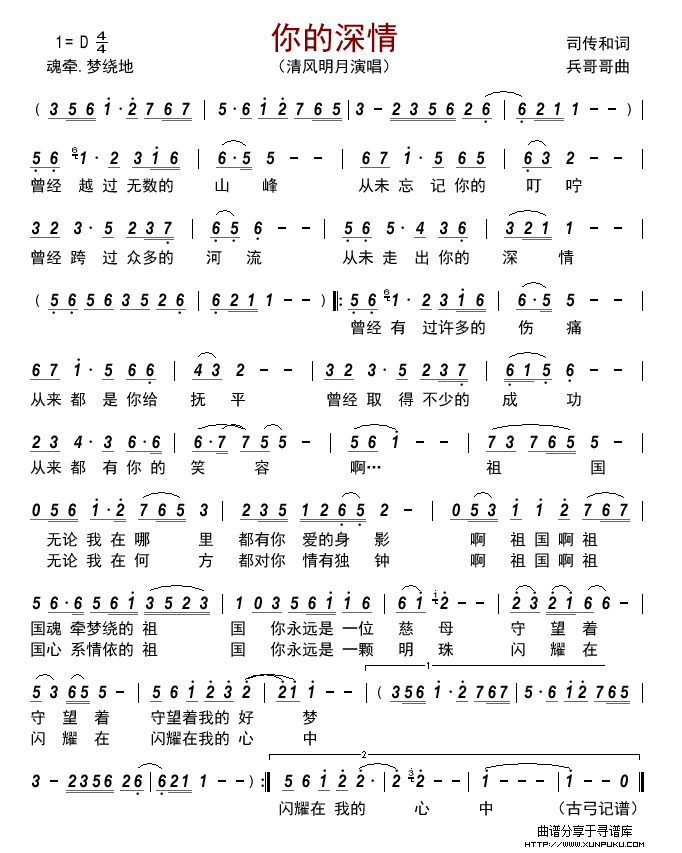 你的深情
1=D 4/4
司传和词
魂牵.梦绕地
（清风明月演唱）
兵哥哥曲
( 3 5 6 1 · 2 7 6 7 | 5 · 6 1 2 7 6 5 6 1 2 | 3 - 2 3 5 6 2 6 | 6 2 1 1 - - )
5 6 6 1 · 2 3 1 6 | 6 · 5 5 - - | 6 7 1 · 5 6 5 | 6 3 2 - - |
曾经 越 过 无数的 山 峰 从未 忘 记 你的 叮 咛
3 2 3 · 5 2 3 7 | 6 5 6 - - | 5 6 5 · 4 3 6 | 3 2 1 1 - - |
曾经 跨 过 众多的 河 流 从未 走 出 你的 深 情
( 5 6 5 6 3 5 2 6 | 6 2 1 1 - - ) ‖: 5 6 6 1 · 2 3 1 6 | 6 · 5 5 - |
曾经 有 过许多的 伤 痛
6 7 1 · 5 6 6 | 4 3 2 - - | 3 6 5 · 5 2 3 7 | 6 1 5 6 - - |
从来 都 是 你给 抚 平 曾经 取 得 不少的 成 功
2 3 4 · 3 6 · 6 | 6 · 7 7 5 5 - | 5 6 1 - - | 7 3 7 6 5 5 - |
从来 都 有 你 的 笑 容 啊… 祖 国
0 5 6 1 · 2 7 6 5 3 | 2 3 5 1 2 6 5 2 - | 0 5 3 1 1 2 7 6 7 |
无论 我 在 哪 里 都有你 爱的身 影 啊 祖 国 啊 祖
无论 我 在 何 方 都对你 情有独 钟 啊 祖 国 啊 祖
5 6 · 6 5 6 5 1 3 5 2 3 | 1 0 3 5 6 1 1 6 | 6 1 1 2 - | 2 3 2 1 6 6 |
国魂 牵梦绕的 祖 国 你永远是 一位 慈 母 守 望 着
国心 系情侬的 祖 国 你永远是 一颗 明 珠 闪 耀 在
1
5 3 6 5 5 - | 5 6 1 2 3 2 | 2 1 1 - | ( 3 5 6 1 · 2 7 6 7 | 5 · 6 1 2 7 6 5 |
守 望 着 守望着我的 好 梦
闪 耀 在 闪耀在我的 心 中
2
3 - 2 3 5 6 2 6 | 6 2 1 1 - - ) :‖ 5 6 1 2 2 · | 2 3 2 - - | 1 - - - | 1 - - 0 ‖
闪耀在 我的 心 中 （古弓记谱）
曲谱分享于寻谱库
HTTP://WWW.XUNPUKU.COM